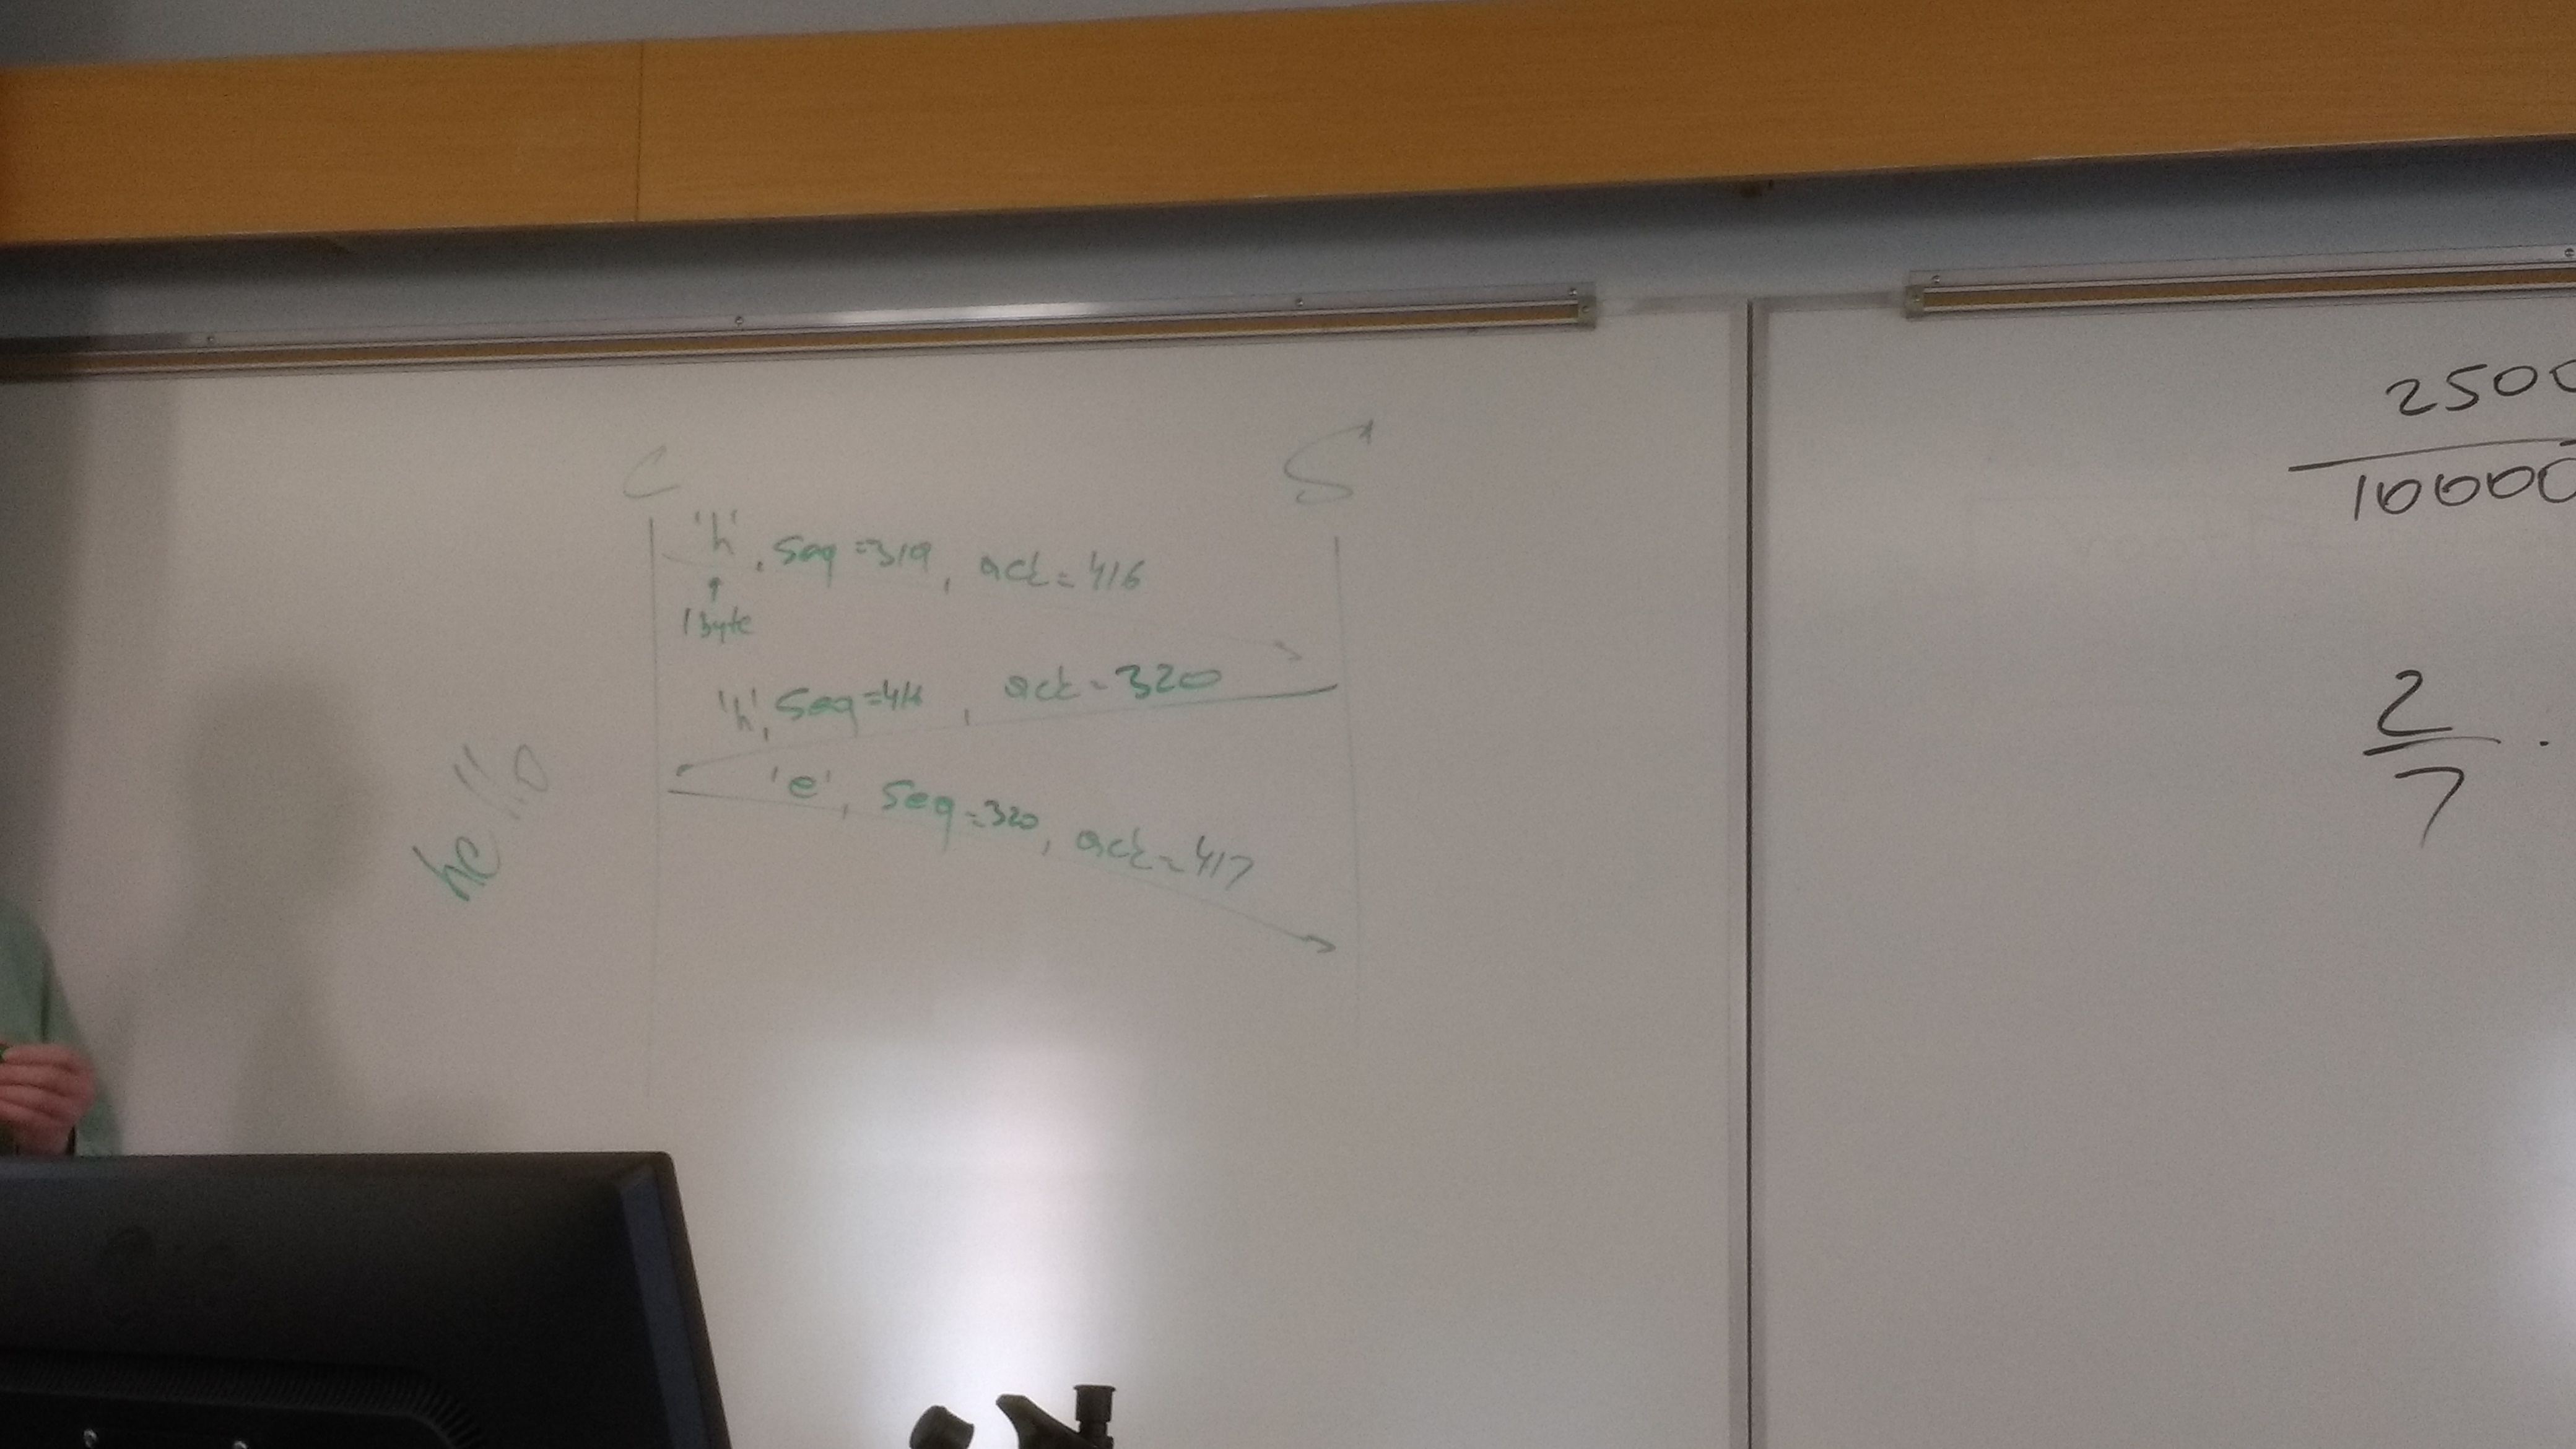 C S
'h', Seq=319, ack=416
1 byte
'h', Seq=416, ack=320
'e', Seq=320, ack=417
hello
2500
10000
2
7